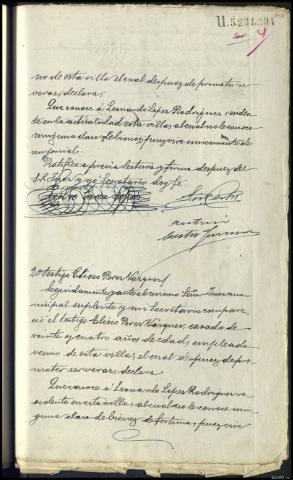 U.5.231.394
no de esta villa el cual despues de prometer se
veraz, declara.
Que conoce á Leonardo Lopez Rodriguez residen
te en la actualidad esta villa, al cual no le conoce
ninguna clase de bienes, pues vive unicamente de
un jornal.
Ratifica previa lectura y firma despues del
S.R. Juez y yo Secretario doy fé.
2º testigo Eliseo Perez Vazquez
Seguidamente, ante el mismo Señor Juez mu
nicipal suplente y su Secretario compare
ció el testigo Eliseo Perez Vazquez, casado de
veinte y cuatro años de edad, empleado
vecino de esta villa, el cual despues de pro
meter ser veraz, declara
Que conoce á Leonardo Lopez Rodriguez re
sidente en esta villa, al cual no le conoce nin
guna clase de bienes de fortuna, pues vive